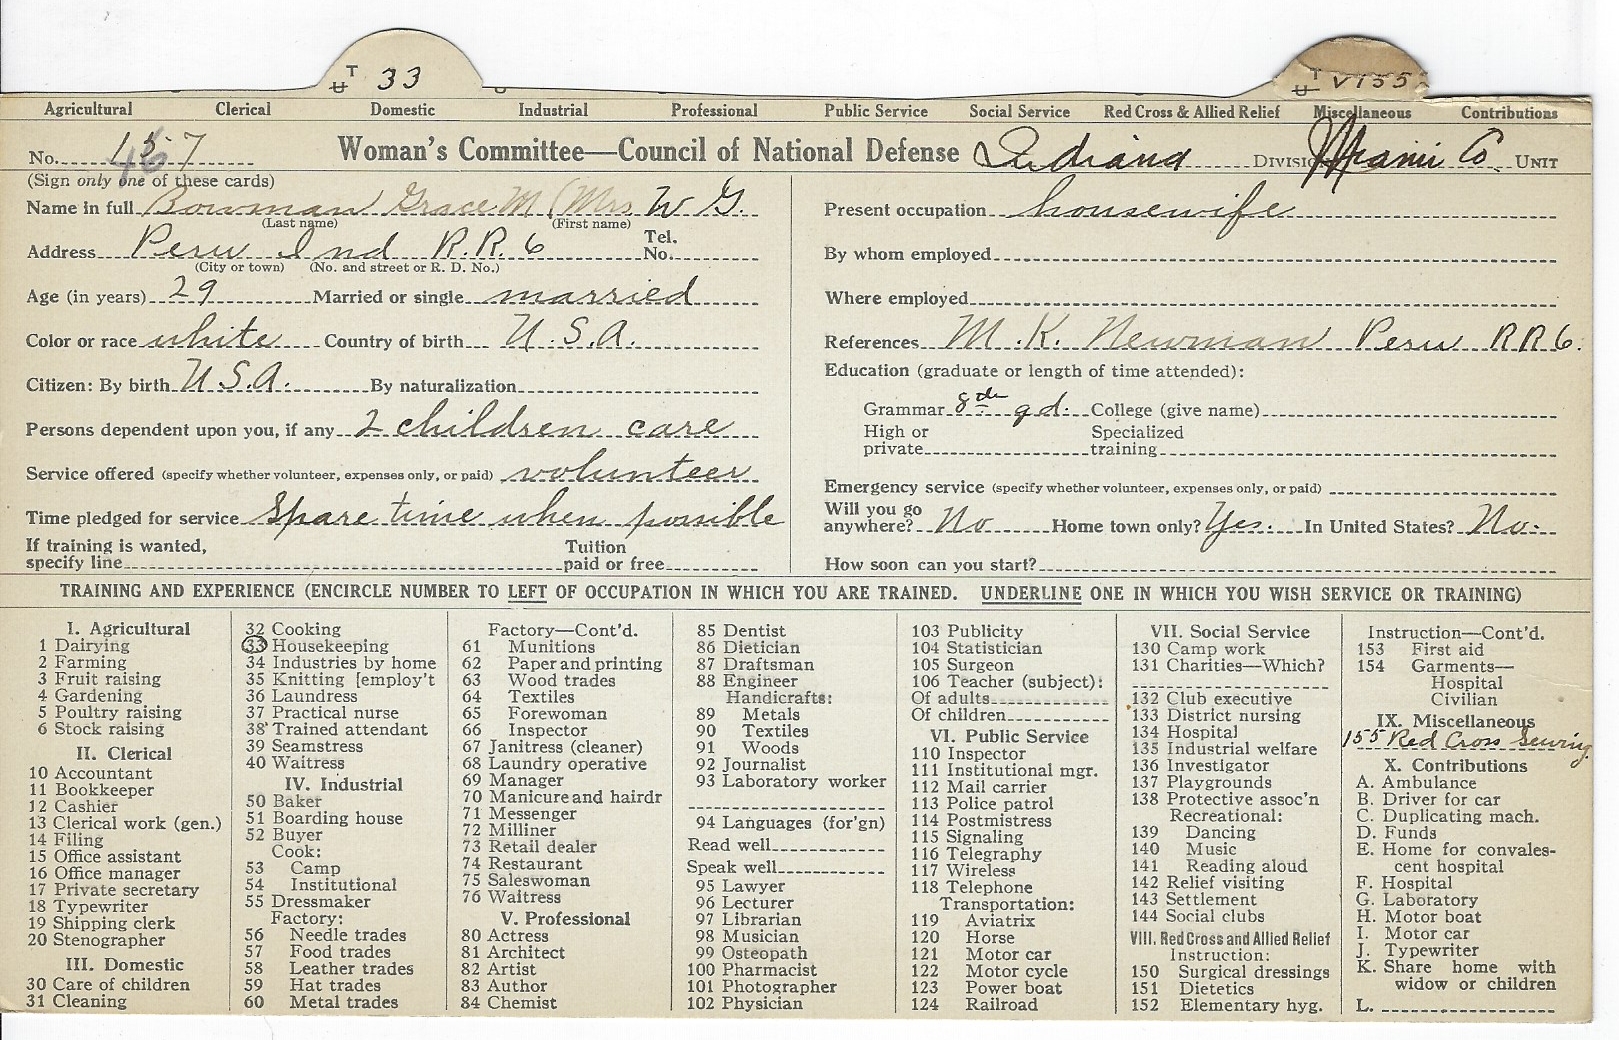 T U 33
T U V155
Agricultural Clerical Domestic Industrial Professional Public Service Social Service Red Cross & Allied Relief Miscellaneous Contributions
No. 157 Woman's Committee—Council of National Defense Indiana DIVISION Miami Co UNIT
(Sign only one of these cards)
Name in full Bowman Grace M (Mrs W G.
(Last name) (First name)
Address Peru Ind R.R. 6 Tel. No.
(City or town) (No. and street or R. D. No.)
Age (in years) 29 Married or single married
Color or race white Country of birth U.S.A.
Citizen: By birth U.S.A. By naturalization
Persons dependent upon you, if any 2 children care
Service offered (specify whether volunteer, expenses only, or paid) volunteer
Time pledged for service Spare time when possible
If training is wanted, specify line Tuition paid or free
Present occupation housewife
By whom employed
Where employed
References M.K. Newman Peru RR6.
Education (graduate or length of time attended):
Grammar 8th gd. College (give name)
High or private Specialized training
Emergency service (specify whether volunteer, expenses only, or paid)
Will you go anywhere? No Home town only? Yes. In United States? No.
How soon can you start?
TRAINING AND EXPERIENCE (ENCIRCLE NUMBER TO LEFT OF OCCUPATION IN WHICH YOU ARE TRAINED. UNDERLINE ONE IN WHICH YOU WISH SERVICE OR TRAINING)
I. Agricultural
1 Dairying
2 Farming
3 Fruit raising
4 Gardening
5 Poultry raising
6 Stock raising
II. Clerical
10 Accountant
11 Bookkeeper
12 Cashier
13 Clerical work (gen.)
14 Filing
15 Office assistant
16 Office manager
17 Private secretary
18 Typewriter
19 Shipping clerk
20 Stenographer
III. Domestic
30 Care of children
31 Cleaning
32 Cooking
33 Housekeeping
34 Industries by home
35 Knitting [employ't
36 Laundress
37 Practical nurse
38 Trained attendant
39 Seamstress
40 Waitress
IV. Industrial
50 Baker
51 Boarding house
52 Buyer
Cook:
53 Camp
54 Institutional
55 Dressmaker
Factory:
56 Needle trades
57 Food trades
58 Leather trades
59 Hat trades
60 Metal trades
Factory—Cont'd.
61 Munitions
62 Paper and printing
63 Wood trades
64 Textiles
65 Forewoman
66 Inspector
67 Janitress (cleaner)
68 Laundry operative
69 Manager
70 Manicure and hairdr
71 Messenger
72 Milliner
73 Retail dealer
74 Restaurant
75 Saleswoman
76 Waitress
V. Professional
80 Actress
81 Architect
82 Artist
83 Author
84 Chemist
85 Dentist
86 Dietician
87 Draftsman
88 Engineer
Handicrafts:
89 Metals
90 Textiles
91 Woods
92 Journalist
93 Laboratory worker
94 Languages (for'gn)
Read well
Speak well
95 Lawyer
96 Lecturer
97 Librarian
98 Musician
99 Osteopath
100 Pharmacist
101 Photographer
102 Physician
103 Publicity
104 Statistician
105 Surgeon
106 Teacher (subject):
Of adults
Of children
VI. Public Service
110 Inspector
111 Institutional mgr.
112 Mail carrier
113 Police patrol
114 Postmistress
115 Signaling
116 Telegraphy
117 Wireless
118 Telephone
Transportation:
119 Aviatrix
120 Horse
121 Motor car
122 Motor cycle
123 Power boat
124 Railroad
VII. Social Service
130 Camp work
131 Charities—Which?
132 Club executive
133 District nursing
134 Hospital
135 Industrial welfare
136 Investigator
137 Playgrounds
138 Protective assoc'n
Recreational:
139 Dancing
140 Music
141 Reading aloud
142 Relief visiting
143 Settlement
144 Social clubs
VIII. Red Cross and Allied Relief
Instruction:
150 Surgical dressings
151 Dietetics
152 Elementary hyg.
Instruction—Cont'd.
153 First aid
154 Garments—
Hospital
Civilian
IX. Miscellaneous
155 Red Cross Sewing
X. Contributions
A. Ambulance
B. Driver for car
C. Duplicating mach.
D. Funds
E. Home for convales-
cent hospital
F. Hospital
G. Laboratory
H. Motor boat
I. Motor car
J. Typewriter
K. Share home with
widow or children
L.